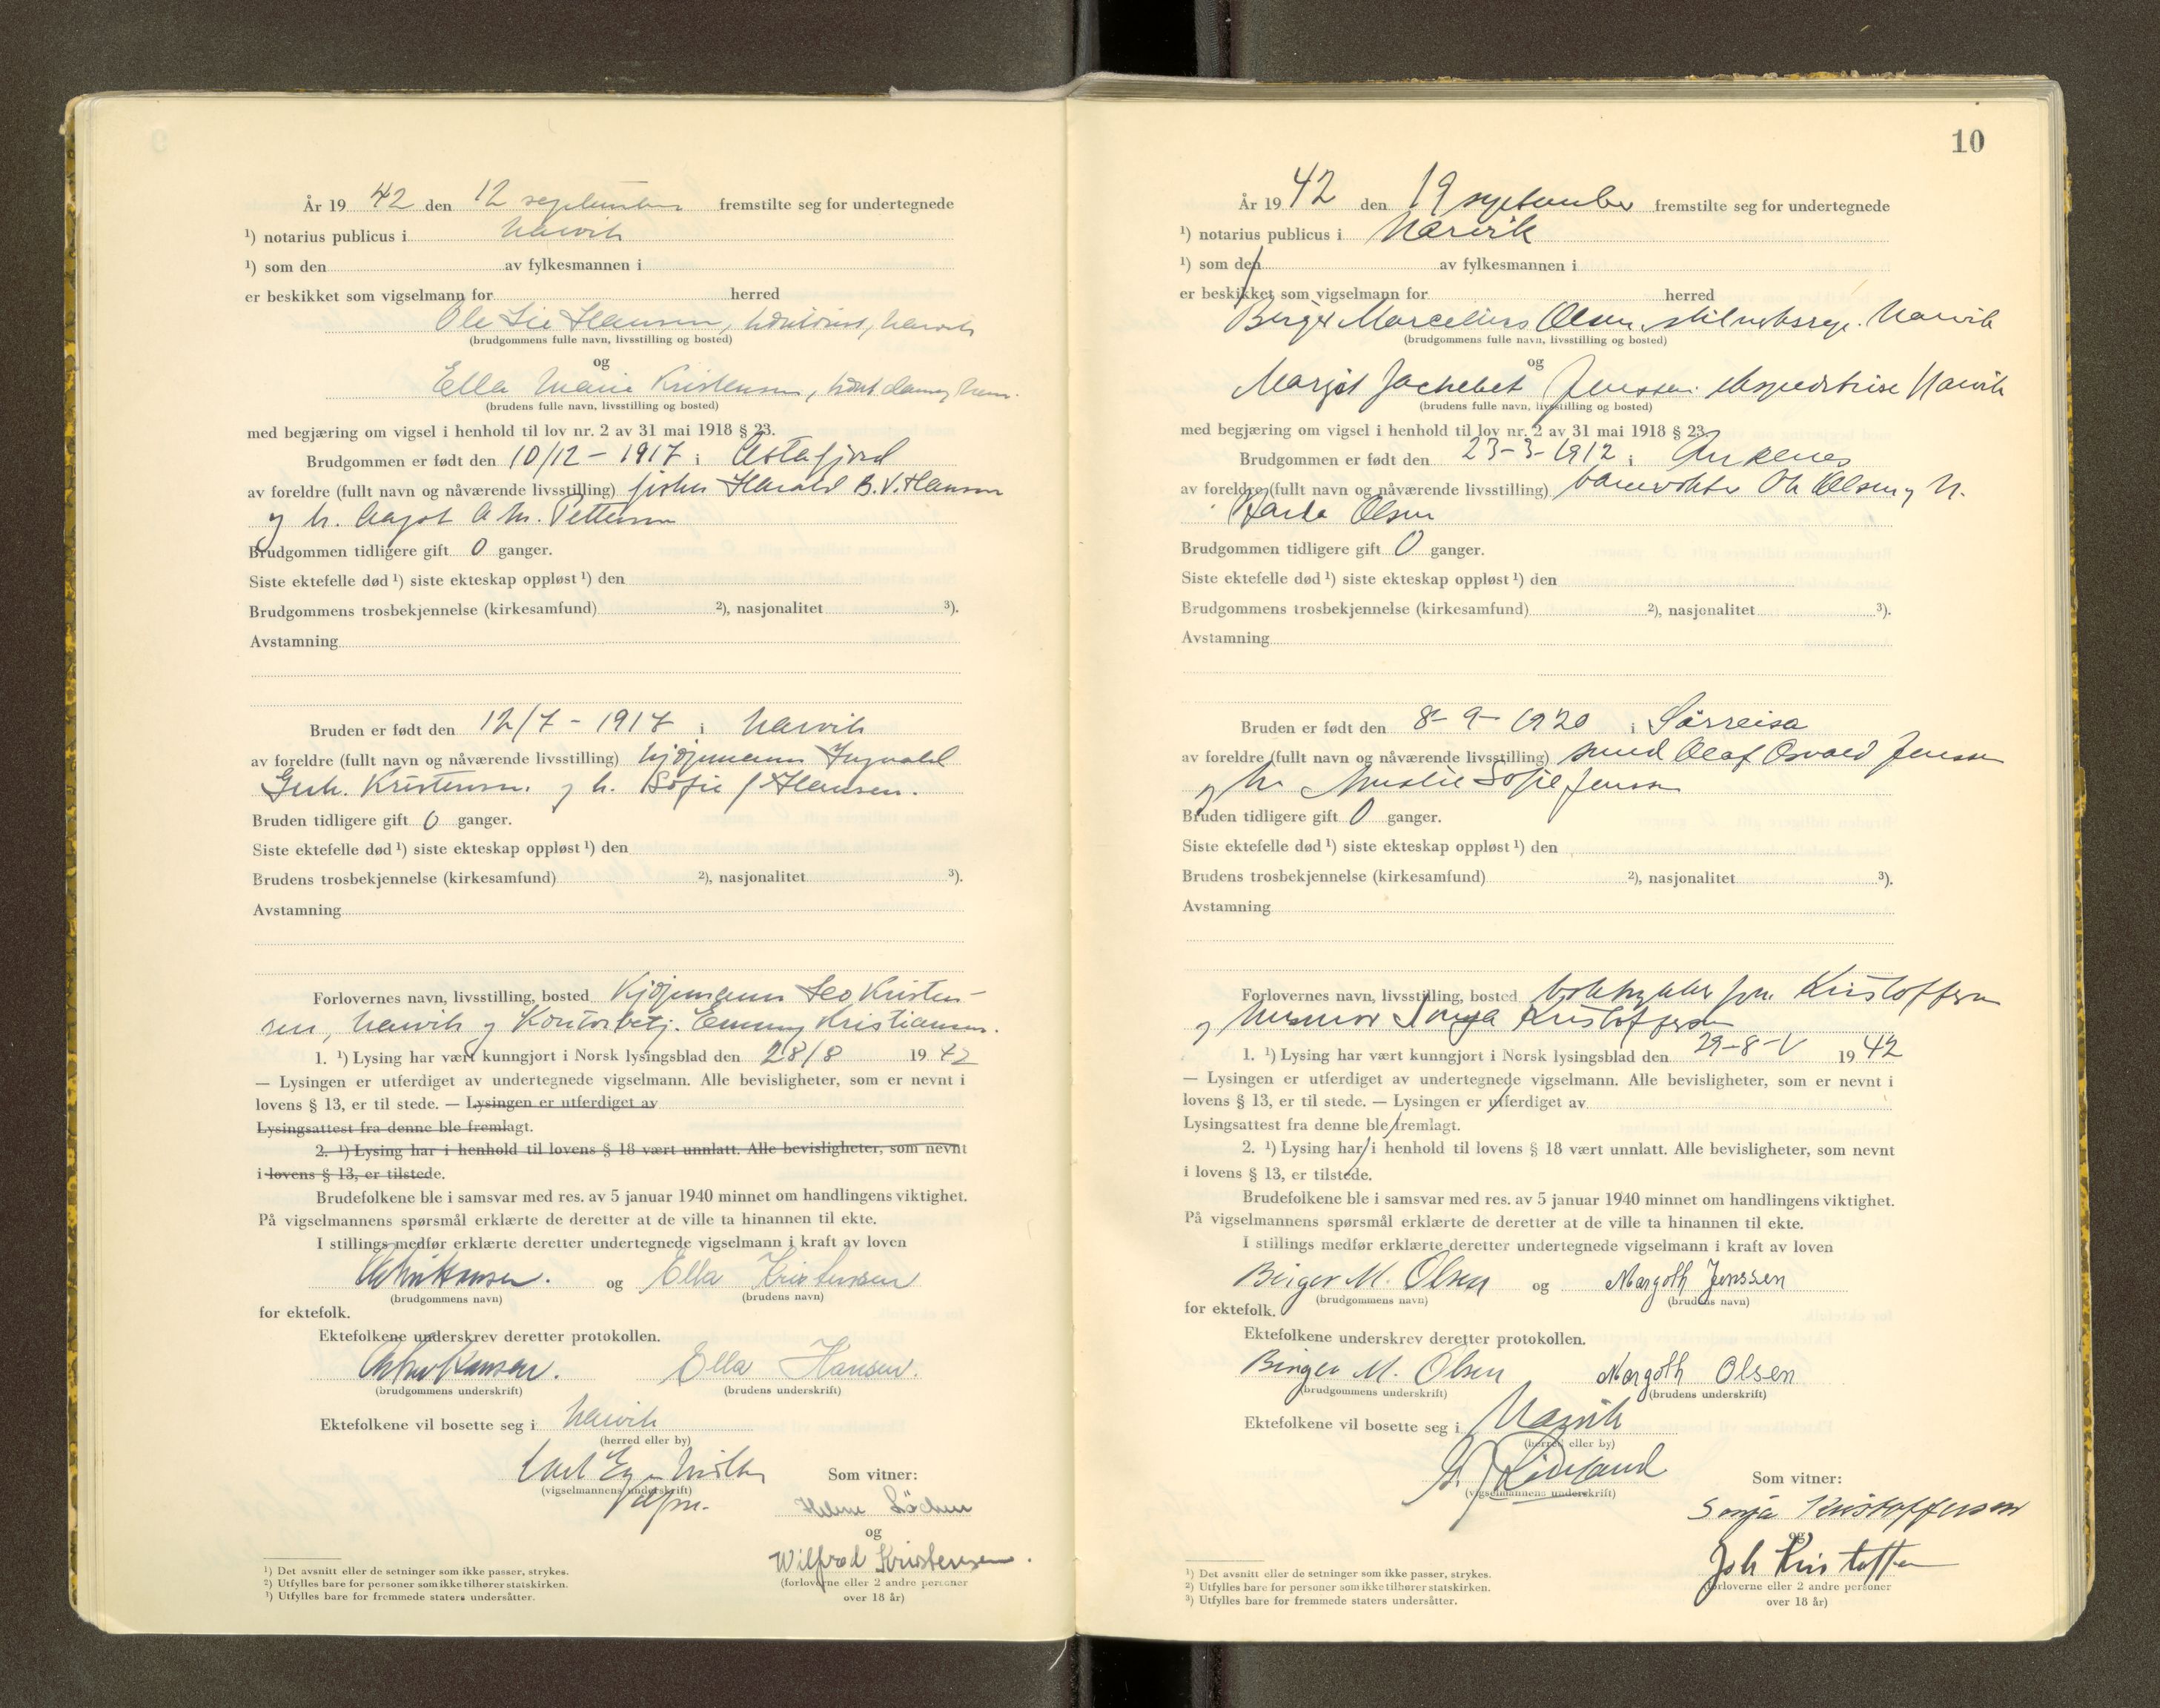 År 19 42 den 12 september fremstilte seg for undertegnede
¹) notarius publicus i Narvik
¹) som den av fylkesmannen i
er beskikket som vigselmann for herred
Ole Lie Hansen, Narvik
(brudgommens fulle navn, livsstilling og bosted)
og
Ella Marie Kristensen,
(brudens fulle navn, livsstilling og bosted)
med begjæring om vigsel i henhold til lov nr. 2 av 31 mai 1918 § 23.
Brudgommen er født den 10/12 - 1917 i Astafjord
av foreldre (fullt navn og nåværende livsstilling) fisker Harald B. V. Hansen
og h. Pettersen
Brudgommen tidligere gift 0 ganger.
Siste ektefelle død ¹) siste ekteskap oppløst ¹) den
Brudgommens trosbekjennelse (kirkesamfund) ²), nasjonalitet ³).
Avstamning
Bruden er født den 12/7 - 1917 i Narvik
av foreldre (fullt navn og nåværende livsstilling) kjøpmann Ingvald
Kristensen. og h. Sofie f Hansen.
Bruden tidligere gift 0 ganger.
Siste ektefelle død ¹) siste ekteskap oppløst ¹) den
Brudens trosbekjennelse (kirkesamfund) ²), nasjonalitet ³).
Avstamning
Forlovernes navn, livsstilling, bosted Kjøpmann Leo Kristen-
sen, Narvik og Kontorbetj. Emmy Kristiansen.
1. ¹) Lysing har vært kunngjort i Norsk lysingsblad den 28/8 19 42
— Lysingen er utferdiget av undertegnede vigselmann. Alle bevisligheter, som er nevnt i
lovens § 13, er til stede. — Lysingen er utferdiget av
Lysingsattest fra denne ble fremlagt.
2. ¹) Lysing har i henhold til lovens § 18 vært unnlatt. Alle bevisligheter, som nevnt
i lovens § 13, er tilstede.
Brudefolkene ble i samsvar med res. av 5 januar 1940 minnet om handlingens viktighet.
På vigselmannens spørsmål erklærte de deretter at de ville ta hinannen til ekte.
I stillings medfør erklærte deretter undertegnede vigselmann i kraft av loven
og Ella Kristensen
(brudgommens navn) (brudens navn)
for ektefolk.
Ektefolkene underskrev deretter protokollen.
Ella Hansen.
(brudgommens underskrift) (brudens underskrift)
Ektefolkene vil bosette seg i Narvik
(herred eller by)
Som vitner:
(vigselmannens underskrift)
og
Wilfred Kristensen.
(forloverne eller 2 andre personer
over 18 år)
¹) Det avsnitt eller de setninger som ikke passer, strykes.
²) Utfylles bare for personer som ikke tilhører statskirken.
³) Utfylles bare for fremmede staters undersåtter.
10
År 19 42 den 19 september fremstilte seg for undertegnede
¹) notarius publicus i Narvik
¹) som den av fylkesmannen i
er beskikket som vigselmann for herred
Birger Marcelius Olsen, Narvik
(brudgommens fulle navn, livsstilling og bosted)
og
Margot Jenssen ekspeditrise Narvik
(brudens fulle navn, livsstilling og bosted)
med begjæring om vigsel i henhold til lov nr. 2 av 31 mai 1918 § 23.
Brudgommen er født den 23-3-1912 i Ankenes
av foreldre (fullt navn og nåværende livsstilling) banevokter Ole Olsen og h.
Olsen
Brudgommen tidligere gift 0 ganger.
Siste ektefelle død ¹) siste ekteskap oppløst ¹) den
Brudgommens trosbekjennelse (kirkesamfund) ²), nasjonalitet ³).
Avstamning
Bruden er født den 8-9-1920 i Sørreisa
av foreldre (fullt navn og nåværende livsstilling) smed Olaf Osvald Jenssen
og h. Sofie Jenssen
Bruden tidligere gift 0 ganger.
Siste ektefelle død ¹) siste ekteskap oppløst ¹) den
Brudens trosbekjennelse (kirkesamfund) ²), nasjonalitet ³).
Avstamning
Forlovernes navn, livsstilling, bosted boktrykker Kristoffersen
og husmor Sonja Kristoffersen
1. ¹) Lysing har vært kunngjort i Norsk lysingsblad den 29-8- 19 42
— Lysingen er utferdiget av undertegnede vigselmann. Alle bevisligheter, som er nevnt i
lovens § 13, er til stede. — Lysingen er utferdiget av
Lysingsattest fra denne ble fremlagt.
2. ¹) Lysing har i henhold til lovens § 18 vært unnlatt. Alle bevisligheter, som nevnt
i lovens § 13, er tilstede.
Brudefolkene ble i samsvar med res. av 5 januar 1940 minnet om handlingens viktighet.
På vigselmannens spørsmål erklærte de deretter at de ville ta hinannen til ekte.
I stillings medfør erklærte deretter undertegnede vigselmann i kraft av loven
Birger M. Olsen og Margoth Jenssen
(brudgommens navn) (brudens navn)
for ektefolk.
Ektefolkene underskrev deretter protokollen.
Birger M. Olsen Margoth Olsen
(brudgommens underskrift) (brudens underskrift)
Ektefolkene vil bosette seg i Narvik
(herred eller by)
Som vitner:
(vigselmannens underskrift)
Sonja Kristoffersen
og
Joh Kristoffersen
(forloverne eller 2 andre personer
over 18 år)
¹) Det avsnitt eller de setninger som ikke passer, strykes.
²) Utfylles bare for personer som ikke tilhører statskirken.
³) Utfylles bare for fremmede staters undersåtter.